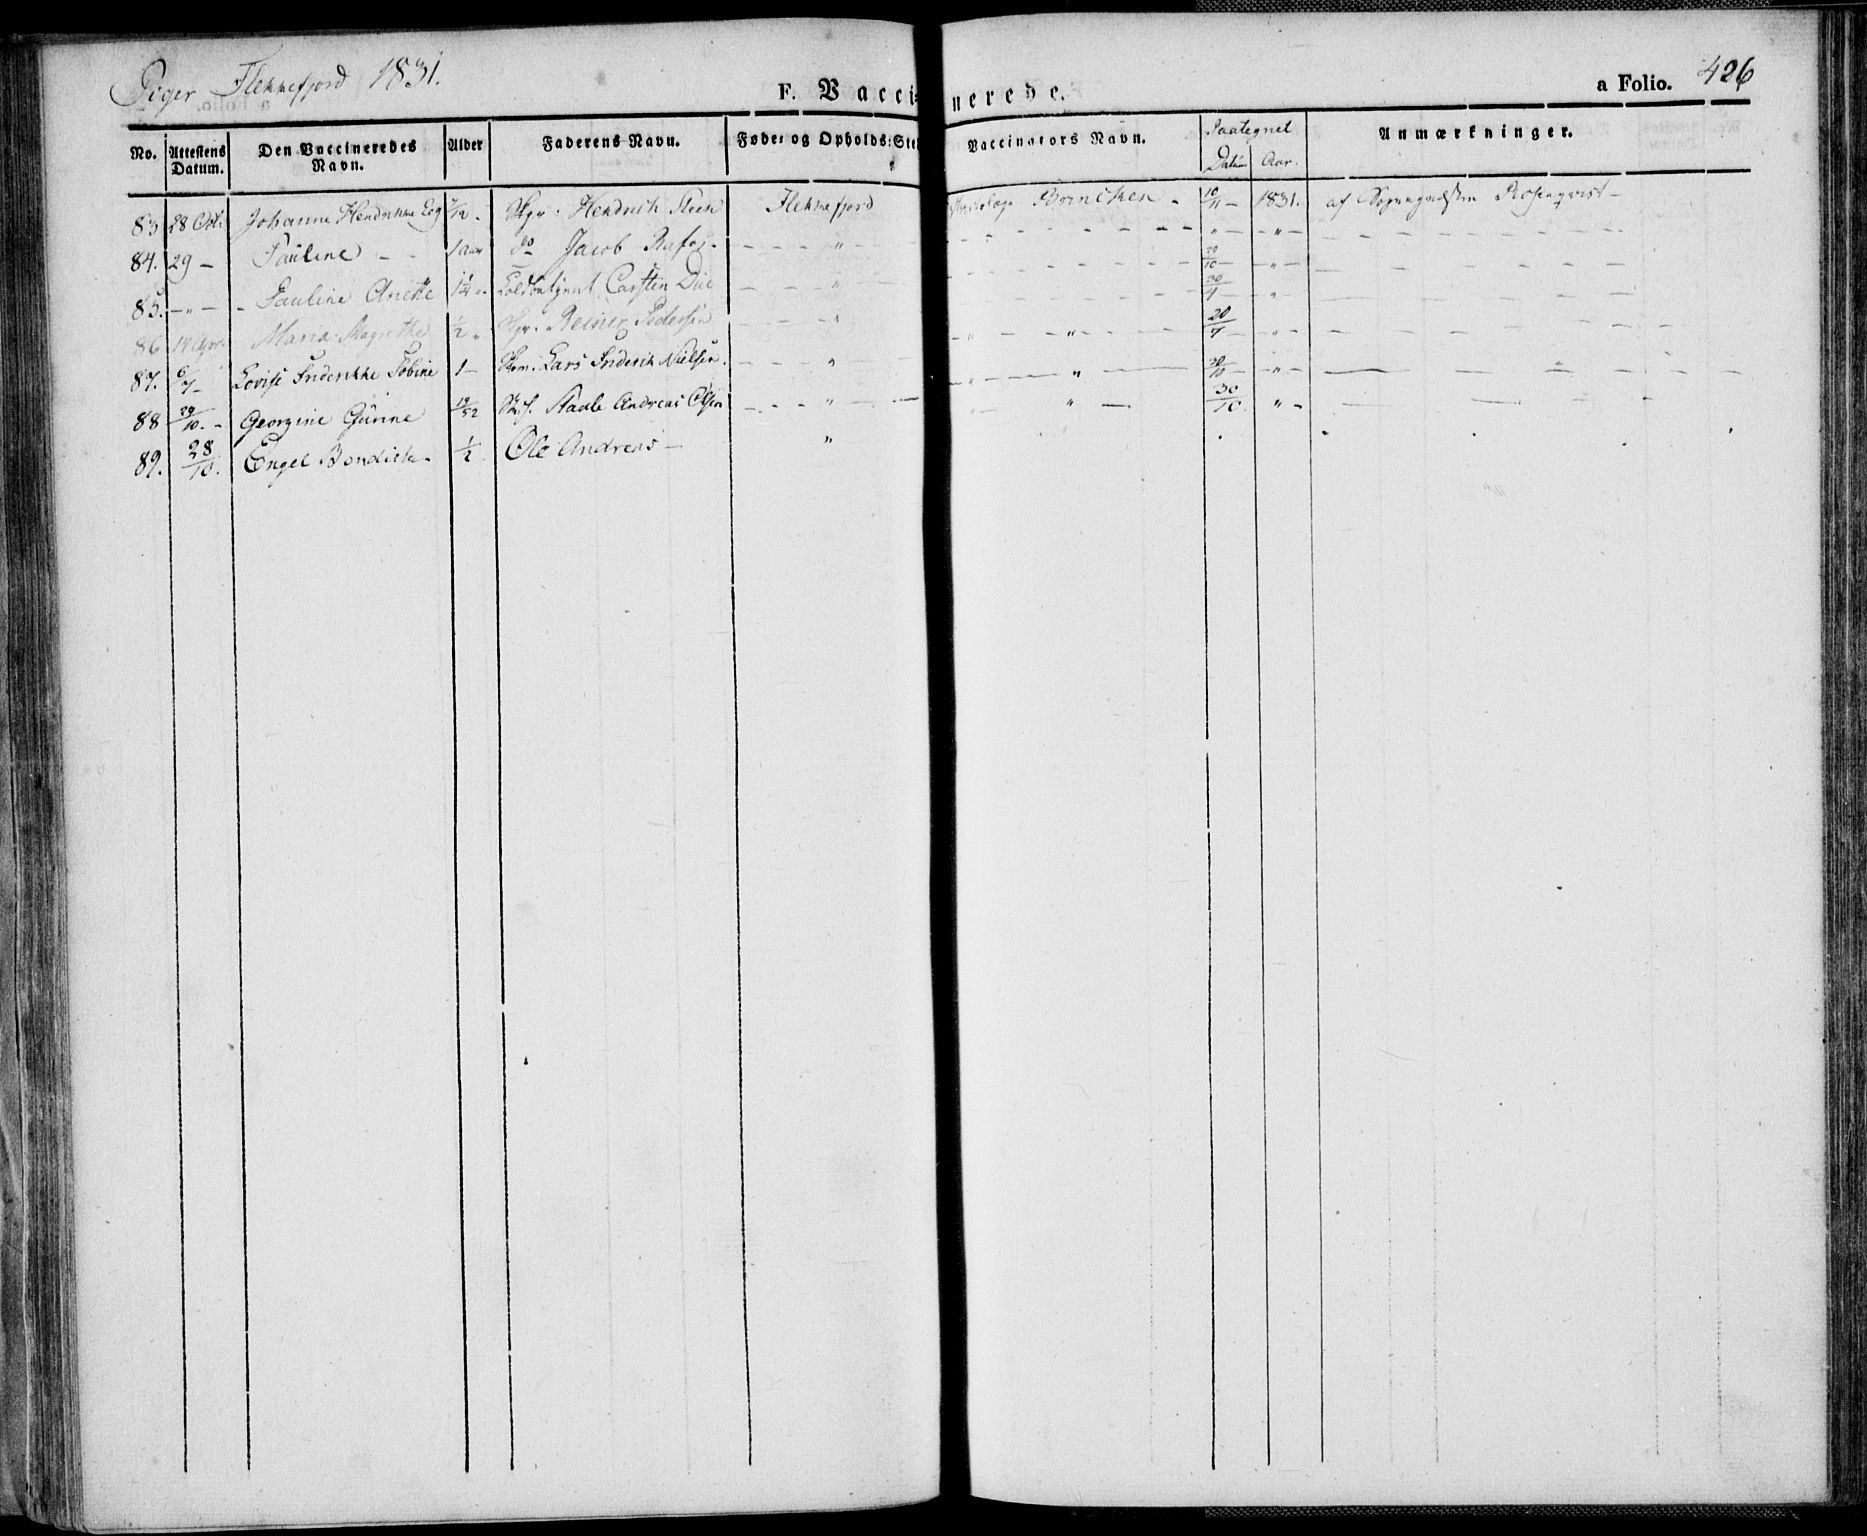 Piger Flekkefjord 1831.
F. Vaccinerede. a Folio. 426
No. | Attestens Datum. | Den Vaccineredes Navn. | Alder | Faderens Navn. | Føde- og Opholds-Ste | Vaccinators Navn. | Paategnet Datum | Aar. | Anmærkninger.
83 | 28 Oct. | Johanne Hendrikke Eeg | 7/12 - | Skpr. Hendrich Steen | Flekkefjord | Brincken - | 10/11 - | 1831. | af Sognepræsten Rosenqvist -
84. | 29 - | Pauline - - | 1 aar | do Jacob Rafos - | - - - " - | - - - - | " - | - " - | - - - -
85. | - " - | Pauline Anette | 1 1/4 " | Toldbetjent Carsten Due | - - - " - | - - - - | 29/10 - | - " - | - - - -
86 | 14 Apr. | Maria Magrethe | 1/2 " | Skpr. Reiner Pedersen | - - - " | - - - - | 30/4 - | - " - | - - - -
87. | 6/7 - | Lovise Friderikke Tobine | 1 - | Lars Friderik Nielsen. | - - " - | " - - " - - | 20/7 - | - " - | - - - -
88 | 29/10. - | Georgine Gurine | 19/52 | Staale Andreas Olsen | - - - " - - | " - - " - - | 30/10 - | - " - | - - - -
89. | 28/10. | Engel Bendicte. | 1/2 | Ole Andreas - | " | " - " - | 30/10. | " - | - - - -